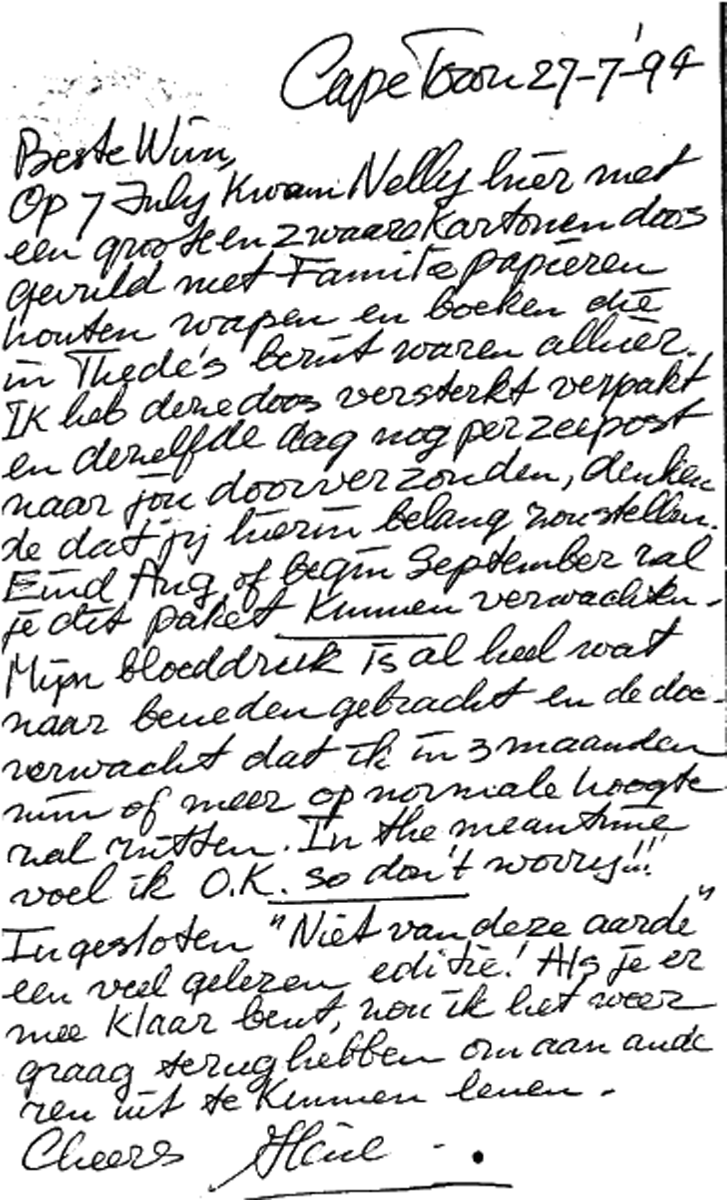 Cape Town 27-7-'94
Beste Wim,
Op 7 July kwam Nelly hier met
een groote en zware kartonnen doos
gevuld met Familie papieren
houten wapen en boeken die
in Thede's bezit waren alhier.
Ik heb deze doos versterkt verpakt
en dezelfde dag nog per zeepost
naar jou doorverzonden, denken
de dat jij hierin belang zou stellen.
Eind Aug. of begin September zal
je dit paket kunnen verwachten.
Mijn bloeddruk is al heel wat
naar beneden gebracht en de doc
verwacht dat ik in 3 maanden
min of meer op normale hoogte
zal zitten. In the meantime
voel ik O.K. so don't worry!!!
Ingesloten "Niet van deze aarde"
een veel gelezen editie! Als je er
mee klaar bent, zou ik het weer
graag terug hebben om aan ande
ren uit te kunnen lenen.
Cheers